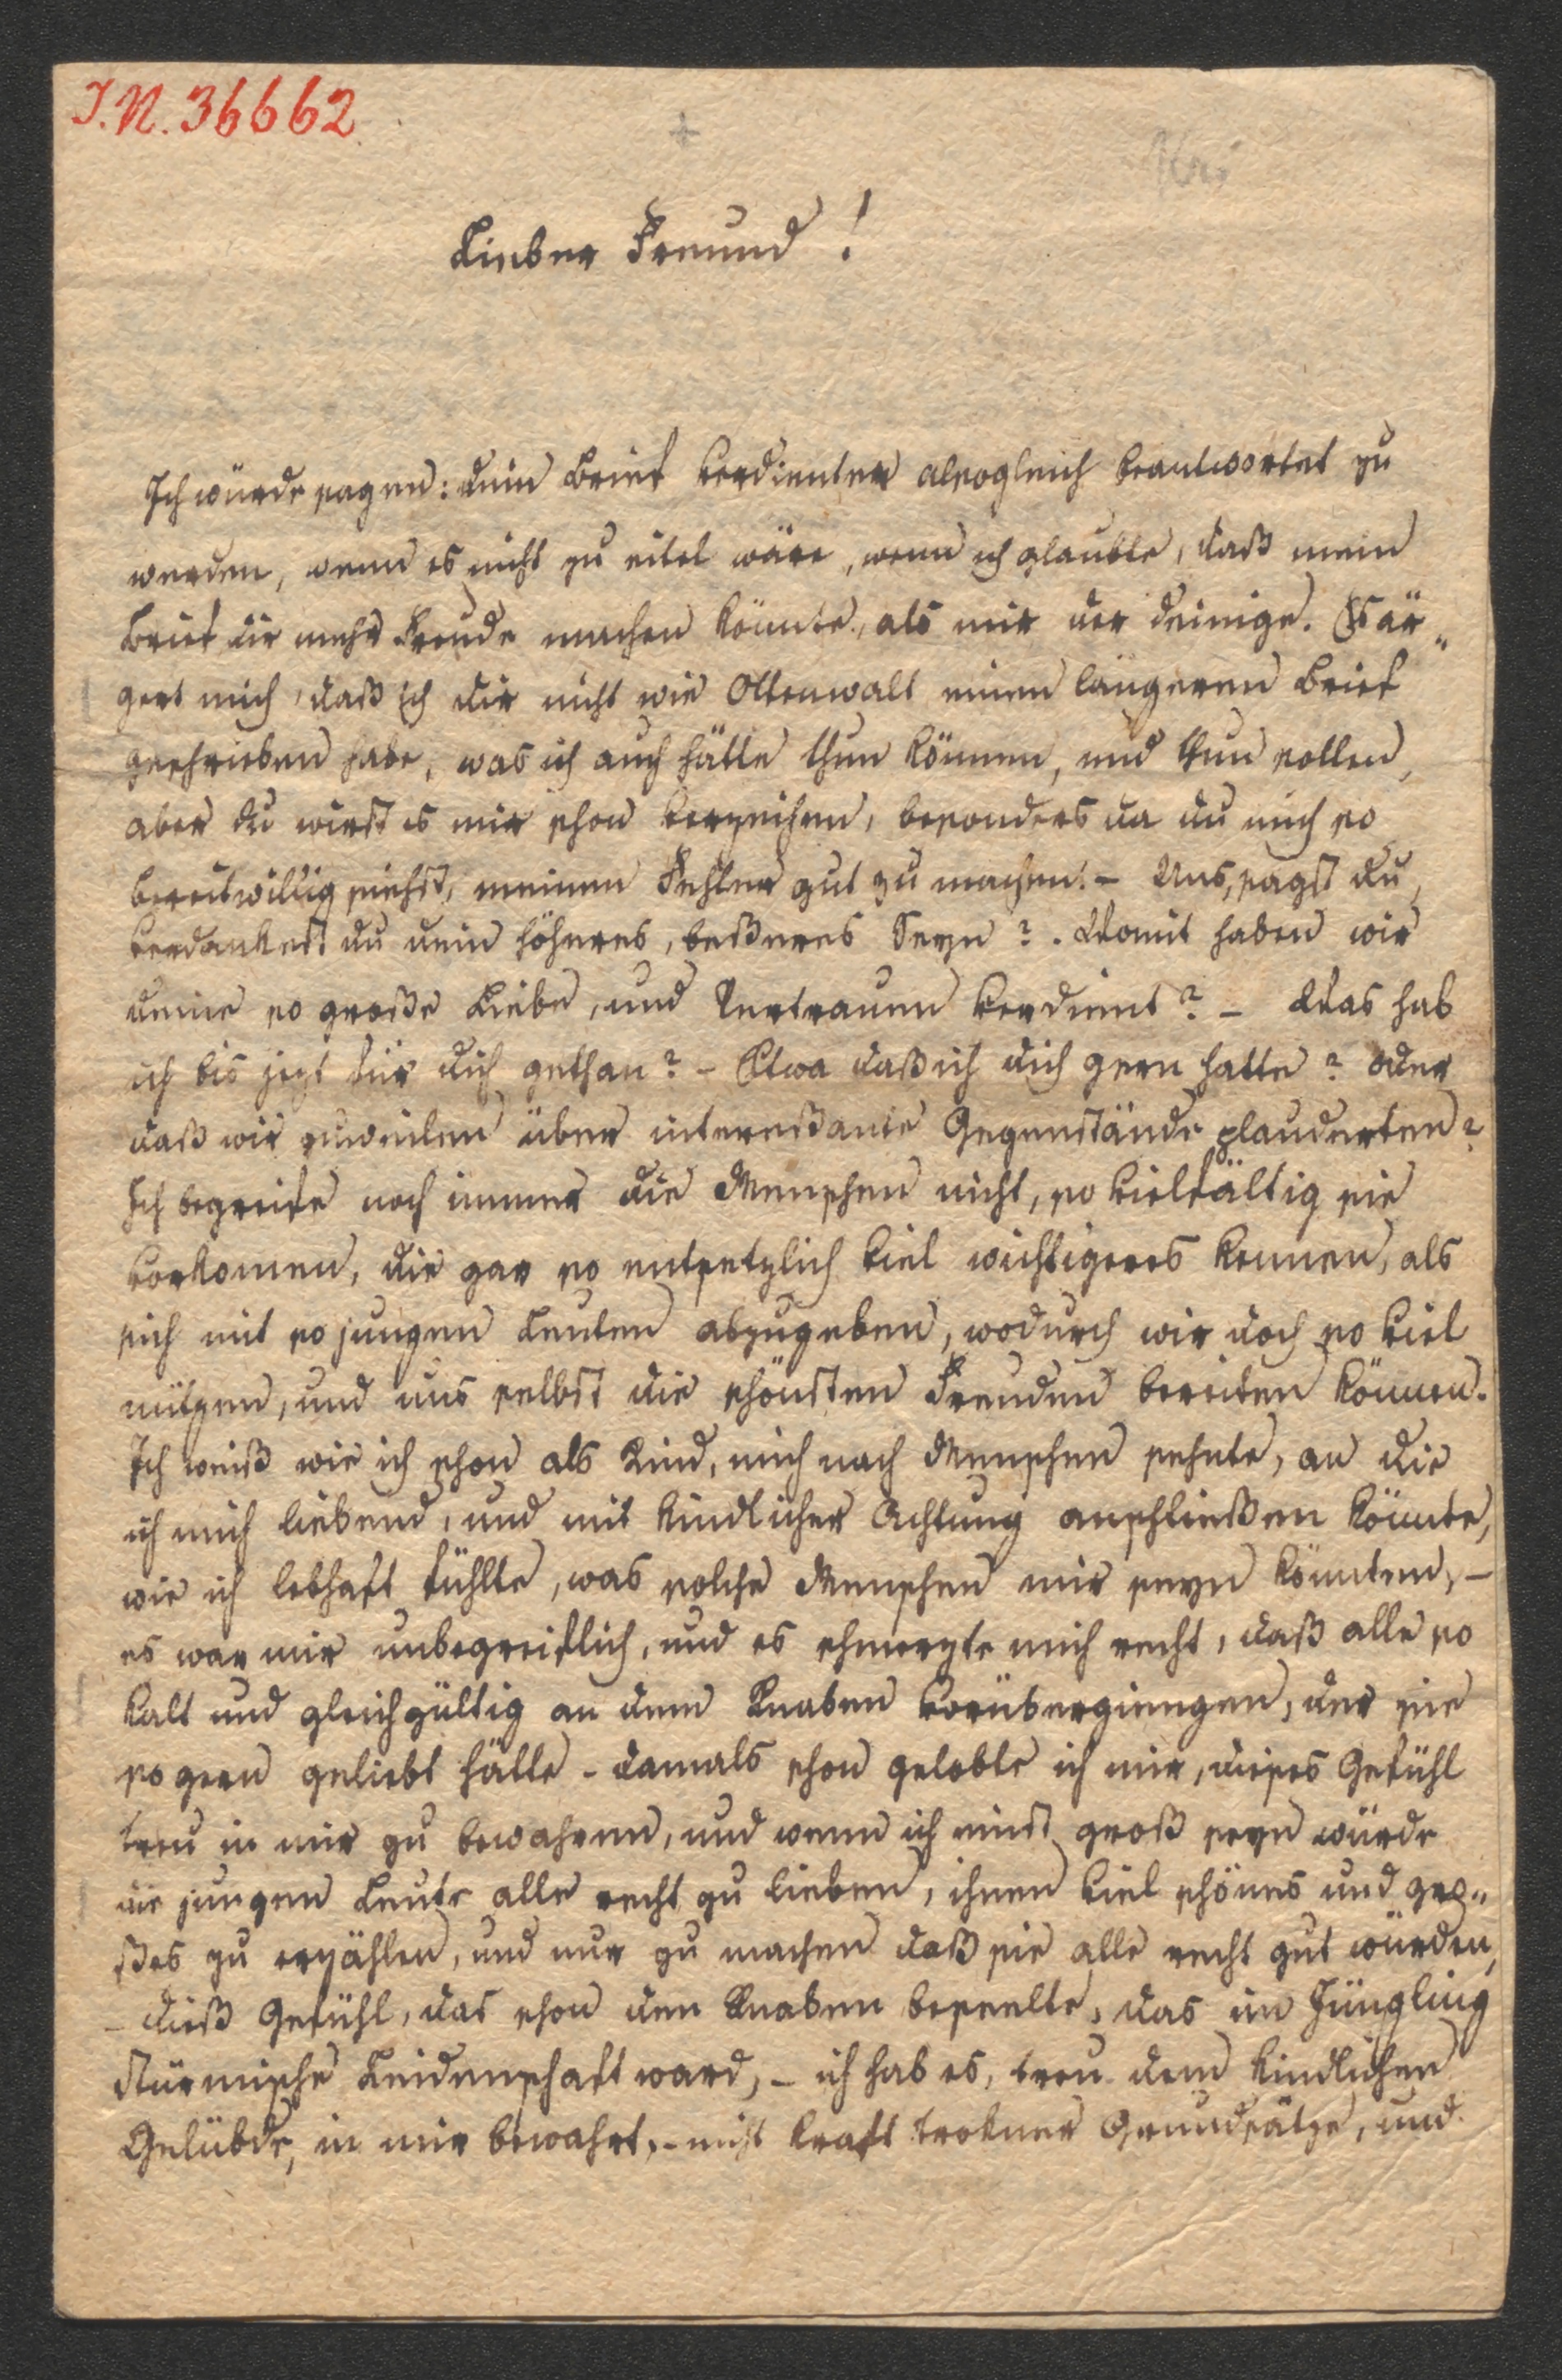 I.N. 36662
Lieber Freund!
Ich würde sagen: dein Brief verdienter alsogleich beantwortet zu
werden, wenn es nicht zu eitel wäre, wenn ich glaubte, daß mein
Brief dir mehr Freude machen könnte, als mir der deinige. Es är„
gert mich, daß ich dir nicht wie Ottenwalt einen längeren Brief
geschrieben habe, was ich auch hätte thun können, und thun sollen,
aber du wirst es mir schon verzeihen, besonders da du mich so
bereitwillig siehst, meinen Fehler gut zu machen. – Uns, sagst du,
verdankest du dein höheres, beßeres Seyn?. Womit haben wir
deine so große Liebe, und Vertrauen verdient? – Was hab
ich bis jezt für dich gethan? – Etwa daß ich dich gern hatte? oder
daß wir zuweilen über intereßante Gegenstände plauderten?
Ich begreife noch immer die Menschen nicht, so vielfältig sie
vorkomen, die gar so entsetzlich viel wichtigeres kennen, als
sich mit so jungen Leuten abzugeben, wodurch wir doch so viel
nützen, und uns selbst die schönsten Freuden bereiten können.
Ich weiß wie ich schon als Kind, mich nach Menschen sehnte, an die
ich mich liebend, und mit kindlicher Achtung anschließen könnte,
wie ich lebhaft fühlte, was solche Menschen mir seyn könnten, –
es war mir unbegreiflich, und es schmerzte mich recht, daß alle so
kalt und gleichgültig an dem Knaben vorübergiengen, der sie
so gern geliebt hätte – damals schon gelobte ich mir, dieses Gefühl
treu in mir zu bewahren, und wenn ich einst groß seyn würde
die jungen Leute alle recht zu lieben, ihnen viel schönes und gro„
ßes zu erzählen, und nur zu machen daß sie alle recht gut würden,
– dieß Gefühl, das schon den Knaben beseelte, das im Jüngling
stürmische Leidenschaft ward, – ich hab es, treu dem kindlichen
Gelübde, in mir bewahrt, – nicht kraft trokner Grundsätze, und